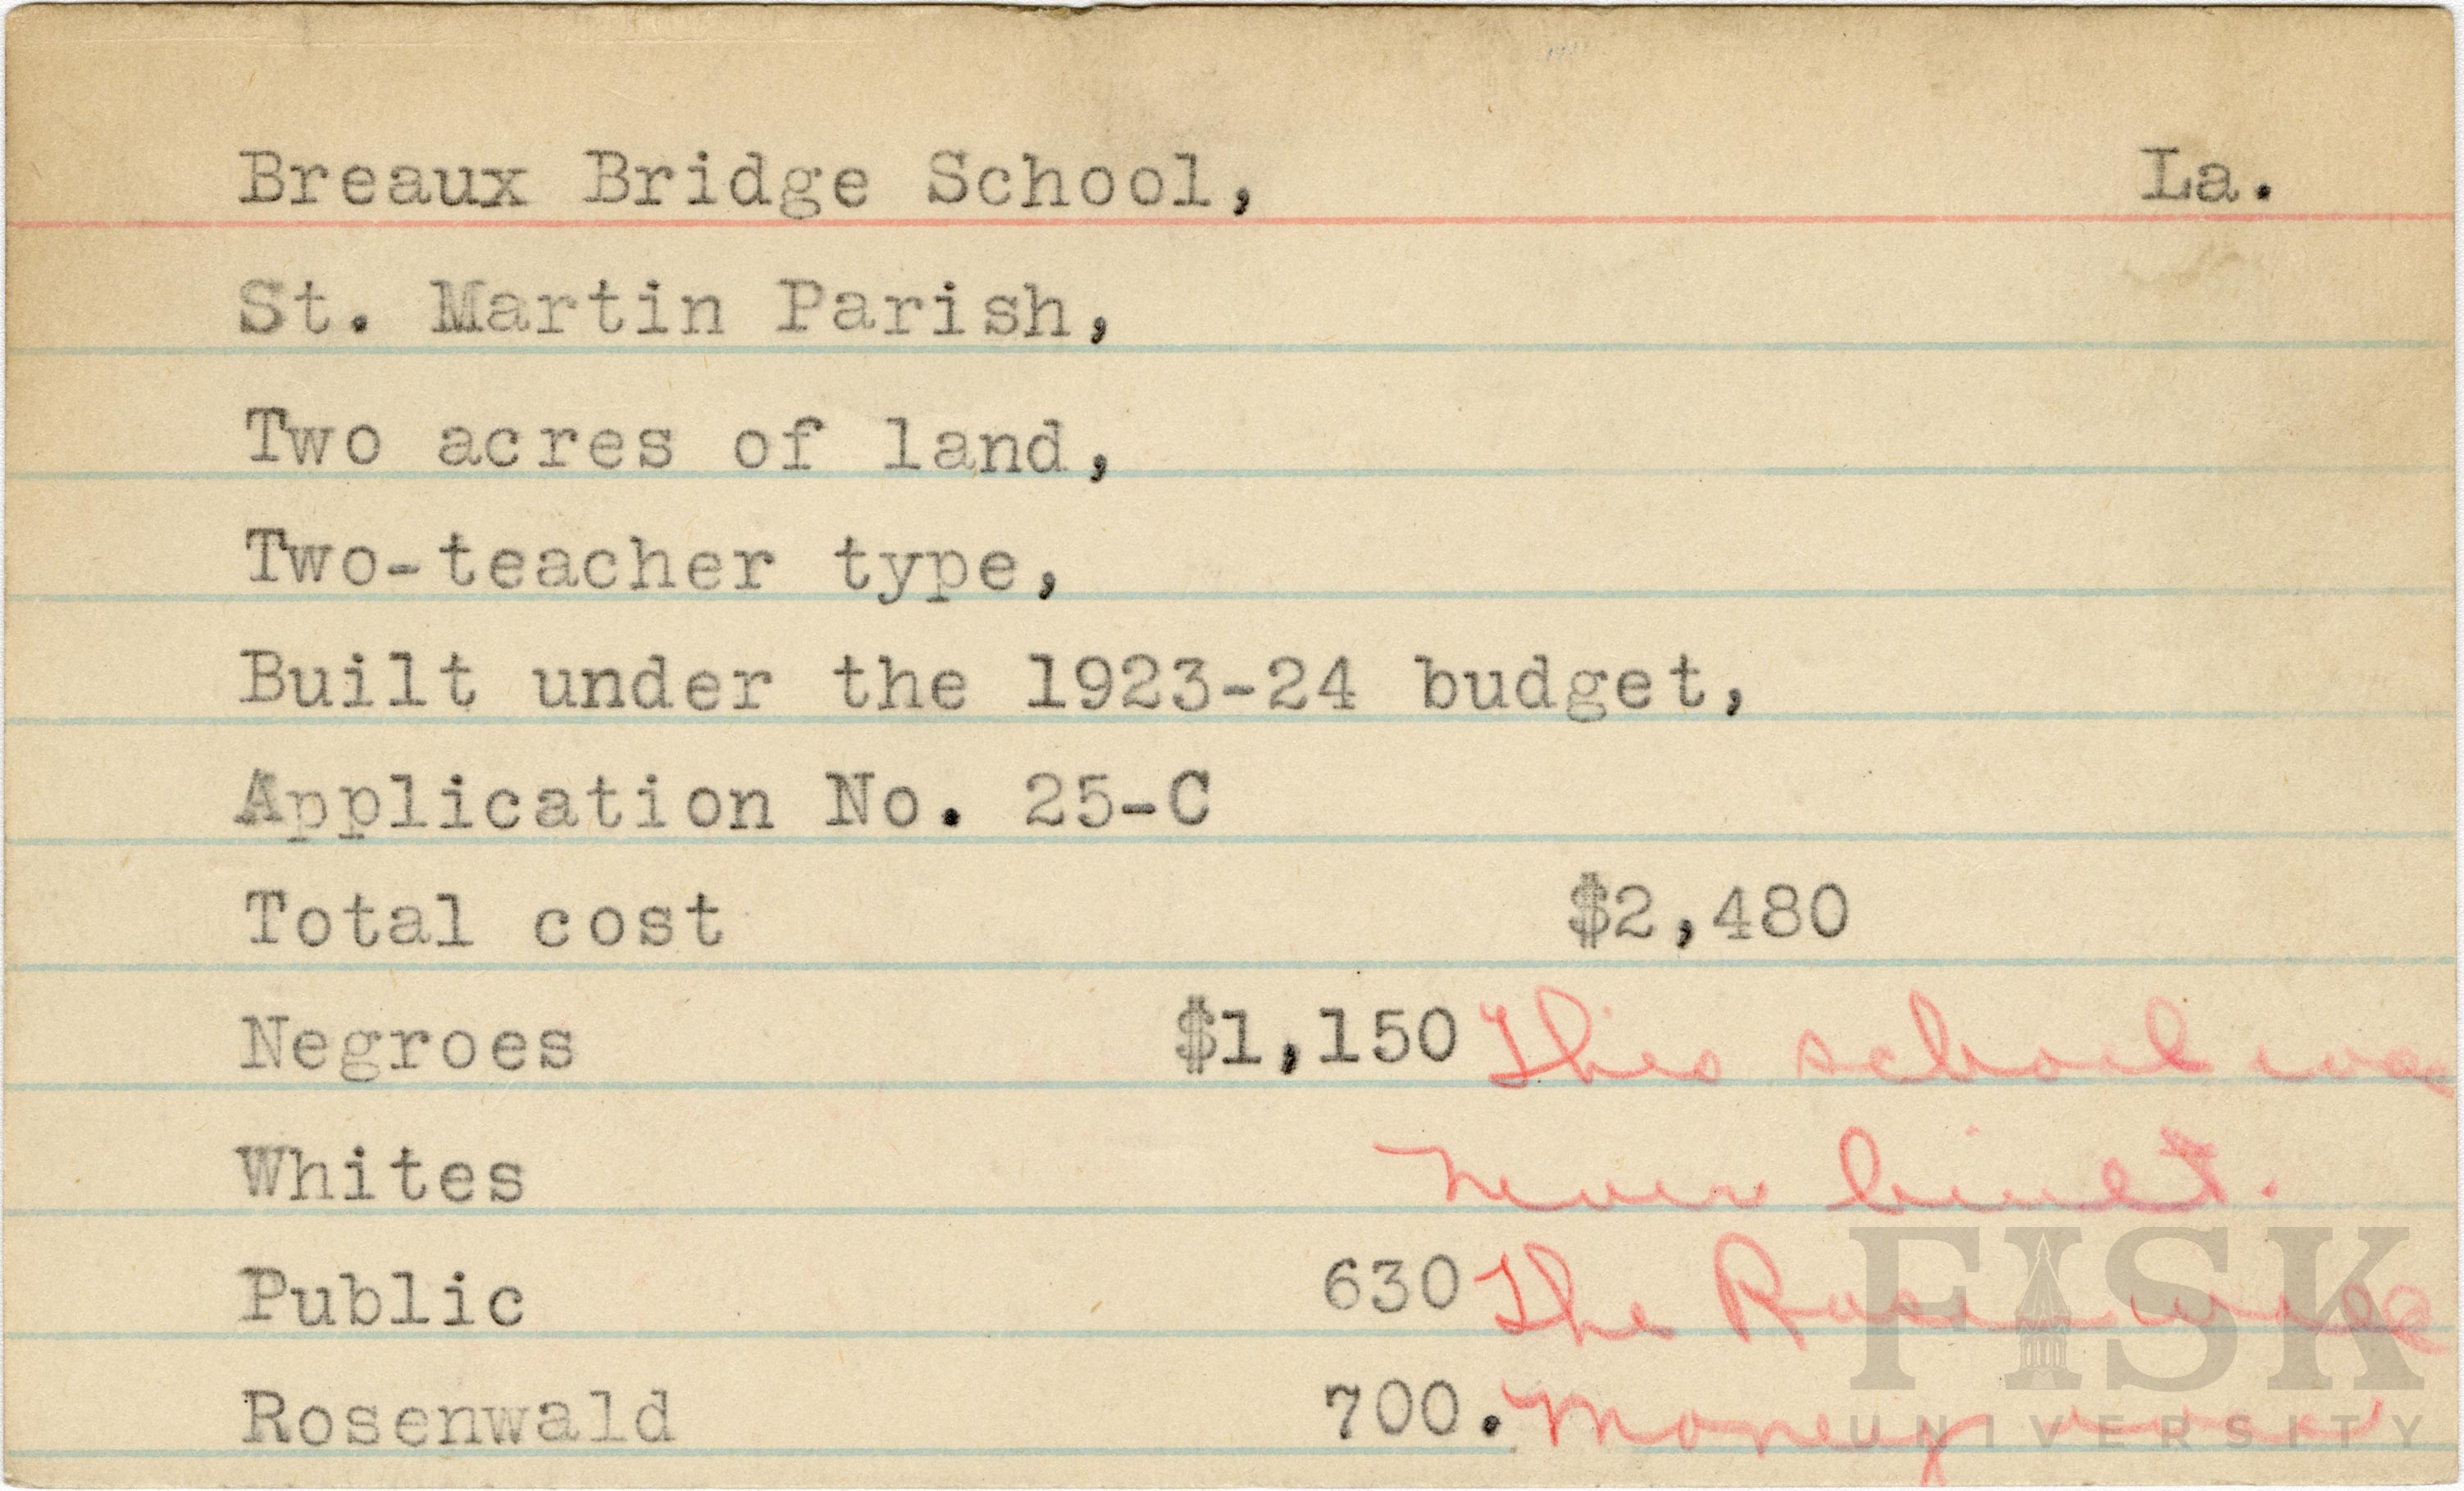 Breaux Bridge School, La.
St. Martin Parish,
Two acres of land,
Two-teacher type,
Built under the 1923-24 budget,
Application No. 25-C
Total cost $2,480
Negroes $1,150 This school was
Whites never built.
Public 630 The Rosenwald
Rosenwald 700. money was
FISK
UNIVERSITY